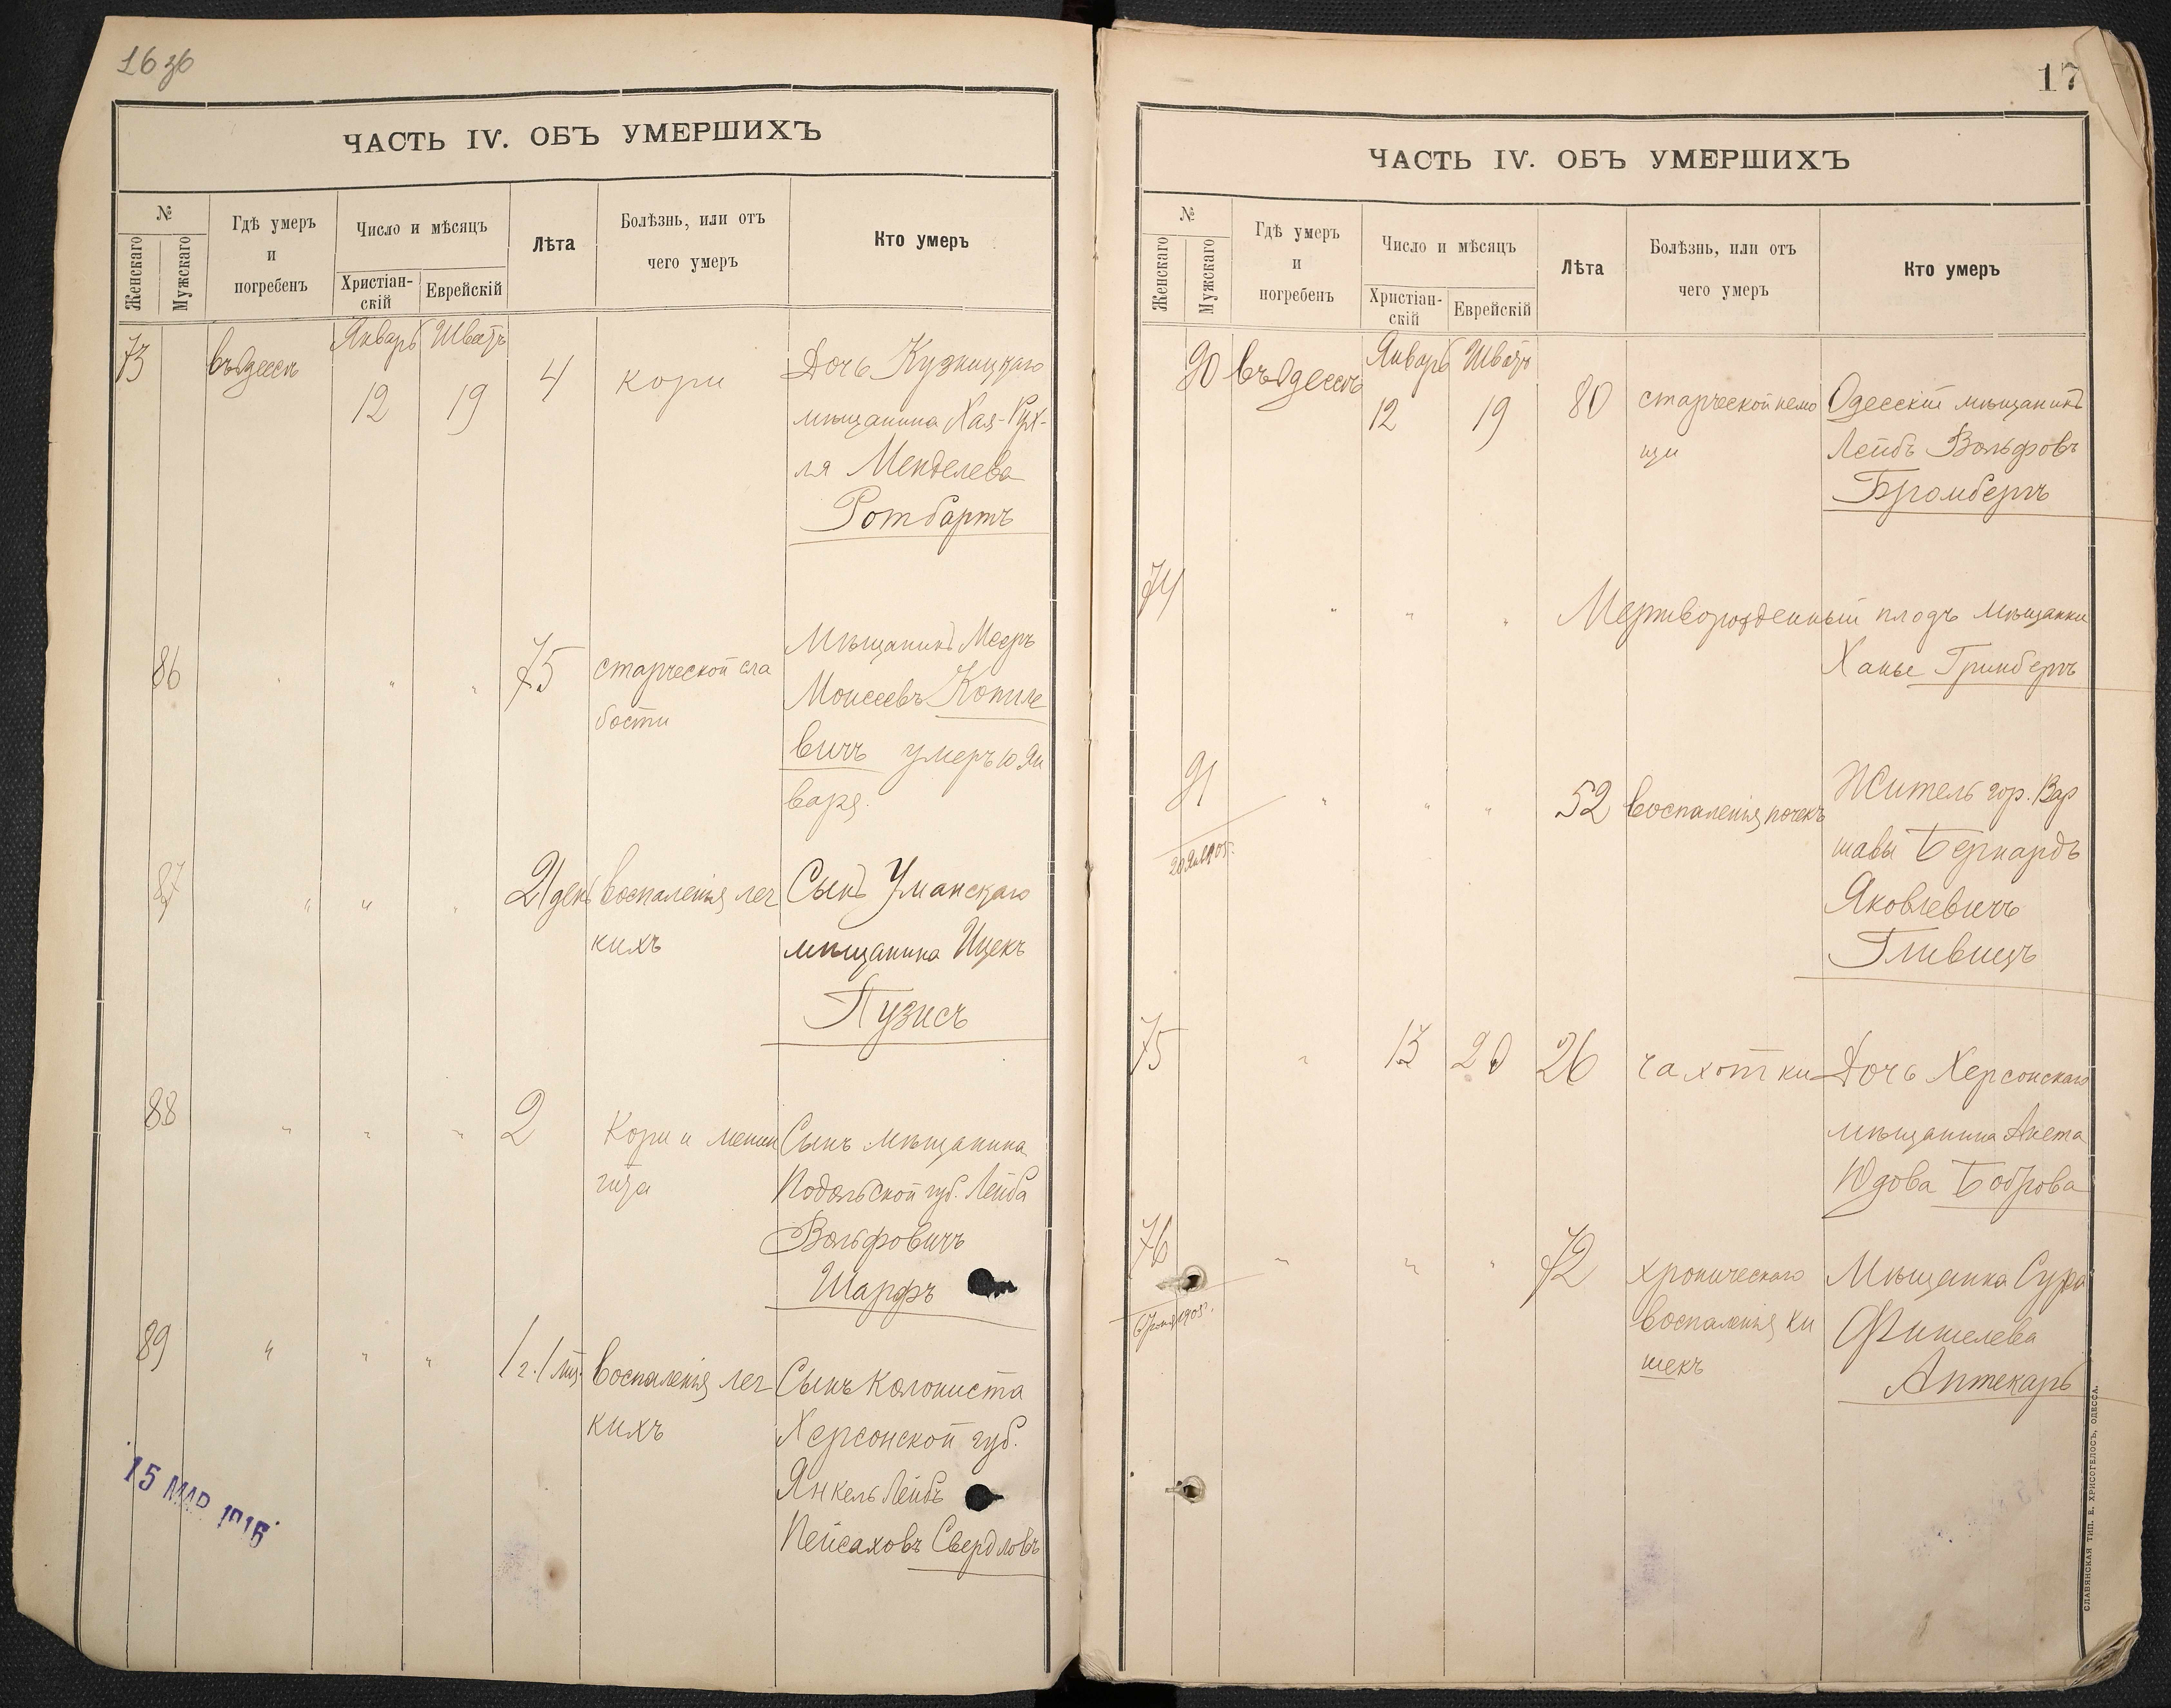 16 об
ЧАСТЬ IV. ОБЪ УМЕРШИХЪ
№
Женскаго
Мужскаго
Гдѣ умеръ
и
погребенъ
Число и мѣсяцъ
Христіан-
скій
Еврейскій
Лѣта
Болѣзнь, или отъ
чего умеръ
Кто умеръ
73
въ Одессѣ
Январь
12
Шватъ
19
4
кори
Дочь Кузницкаго
мѣщанина Хая-Рух-
ля Менделева
Ротбартъ
86
"
"
"
75
старческой сла
бости
Мѣщанинъ Мееръ
Моисеевъ Копиле
вичъ умеръ 10 Ян
варя.
87
"
"
"
21 день
воспаленія лег
кихъ
Сынъ Уманскаго
мѣщанина Ицекъ
Пузисъ
88
"
"
"
2
Кори и менин
гита
Сынъ мѣщанина
Подольской губ. Лейба
Вольфовичъ
Шарфъ
89
"
"
"
1 г. 1 мѣ.
воспаленія лег
кихъ
Сынъ колониста
Херсонской губ.
Янкель Лейбъ
Пейсаховъ Свердловъ
15 МАР 1916
17
ЧАСТЬ IV. ОБЪ УМЕРШИХЪ
№
Женскаго
Мужскаго
Гдѣ умеръ
и
погребенъ
Число и мѣсяцъ
Христіан-
скій
Еврейскій
Лѣта
Болѣзнь, или отъ
чего умеръ
Кто умеръ
90
въ Одессѣ
Январь
12
Шватъ
19
80
старческой немо
щи
Одесскій мѣщанинъ
Лейбъ Вольфовъ
Бромбергъ
74
"
"
"
Мертворожденный плодъ мѣщанки
Ханы Гринбергъ
91
20 Янв 1905г.
"
"
"
52
воспаленія почекъ
Житель гор. Вар
шавы Бернардъ
Яковлевичъ
Гливицъ
75
"
13
20
26
чахотки
Дочь Херсонскаго
мѣщанина Анета
Юдова Боброва
76
1905г.
"
"
"
72
хроническаго
воспаленія ки
шекъ
Мѣщанка Сура
Фишелева
Аптекарь
СЛАВЯНСКАЯ ТИП. Е. ХРИСОГЕЛОСЪ, ОДЕССА.